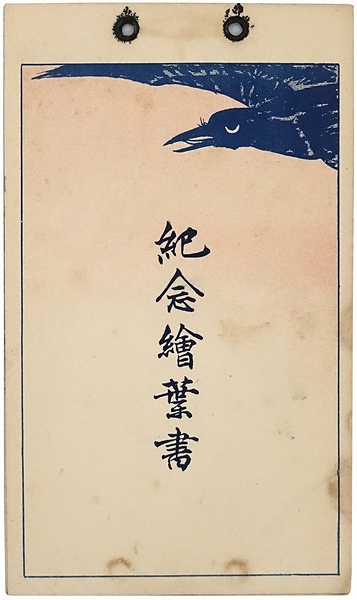 紀念繪葉書